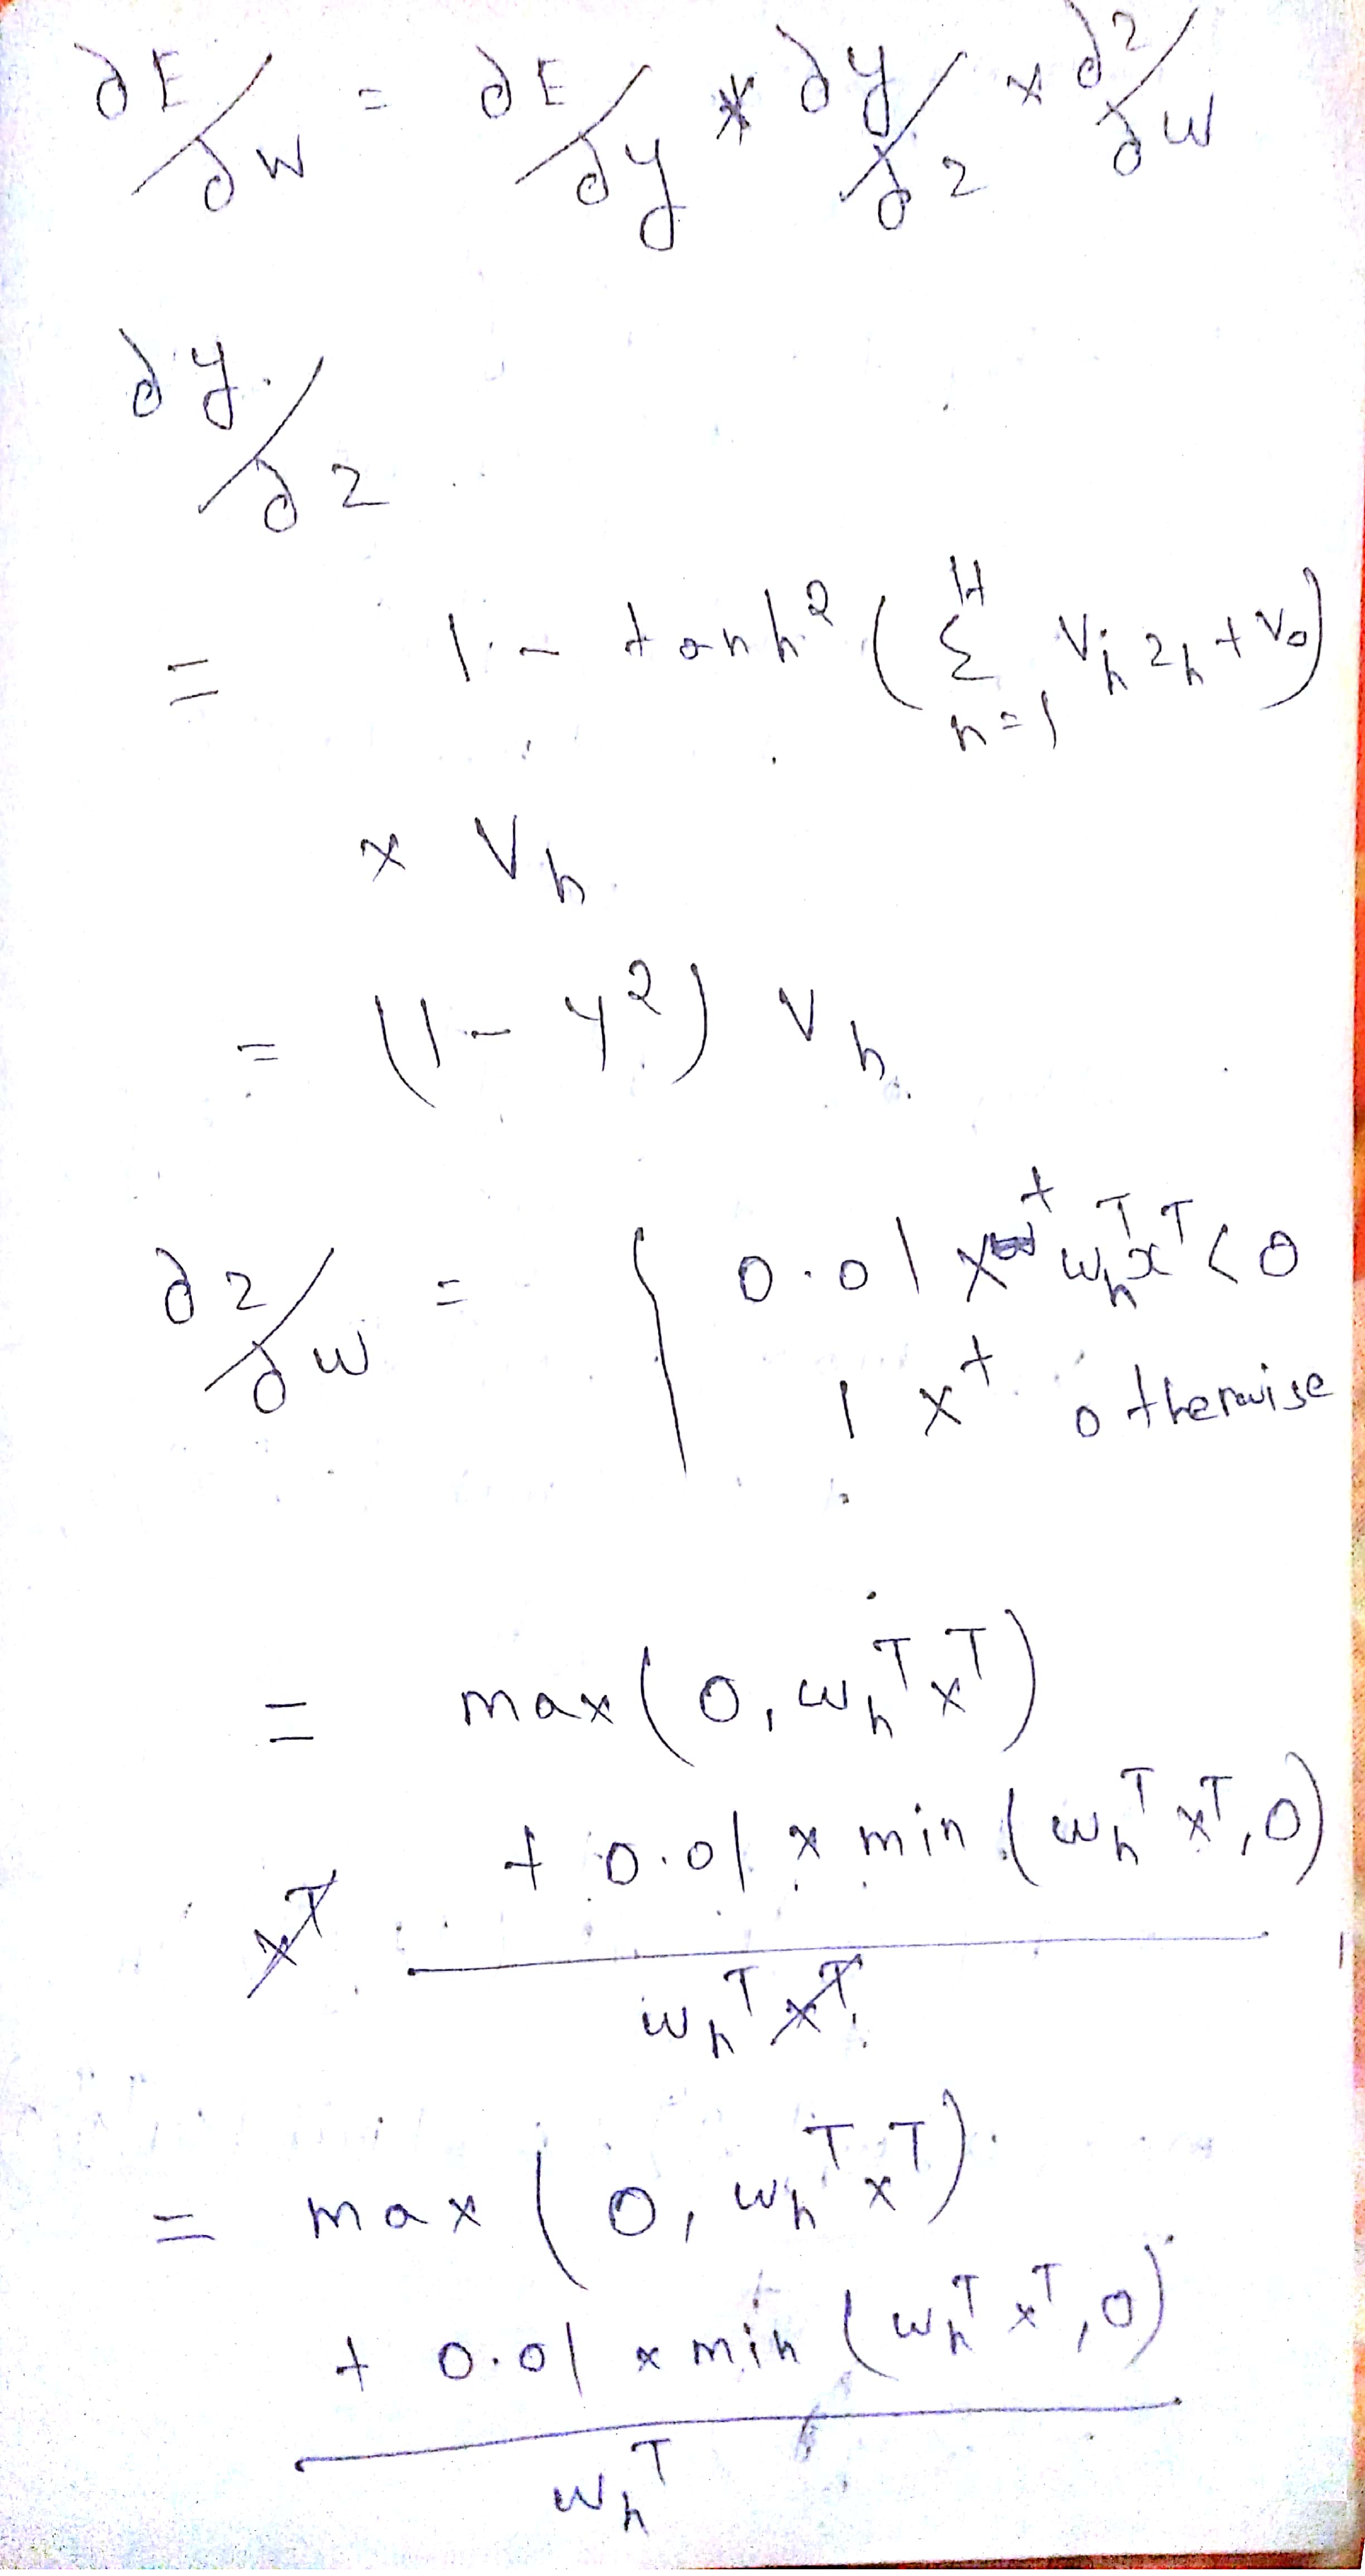 ∂E/∂w = ∂E/∂y * ∂y/∂z × ∂z/∂w
∂y/∂z
= 1 - tanh² ( Σ_{h=1}^{H} v_h z_h + v_0 )
× v_h
= (1 - y²) v_h
∂z/∂w = { 0.01 x^t w_h^T x^T < 0
1 x^t otherwise
= max ( 0, w_h^T x^T )
+ 0.01 × min ( w_h^T x^T, 0 )
x^T
w_h^T x^T
= max ( 0, w_h^T x^T )
+ 0.01 × min ( w_h^T x^T, 0 )
w_h^T